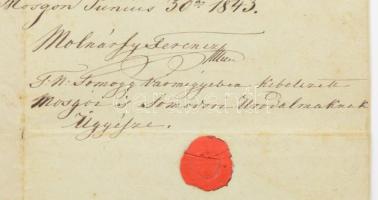 Mosgon Junius 30án 1843.
Molnárfy Ferencz
T. N. Somogy Vármegyében kebelezett
Mosgói s Somodori Uradalmaknak
Ügyésze.